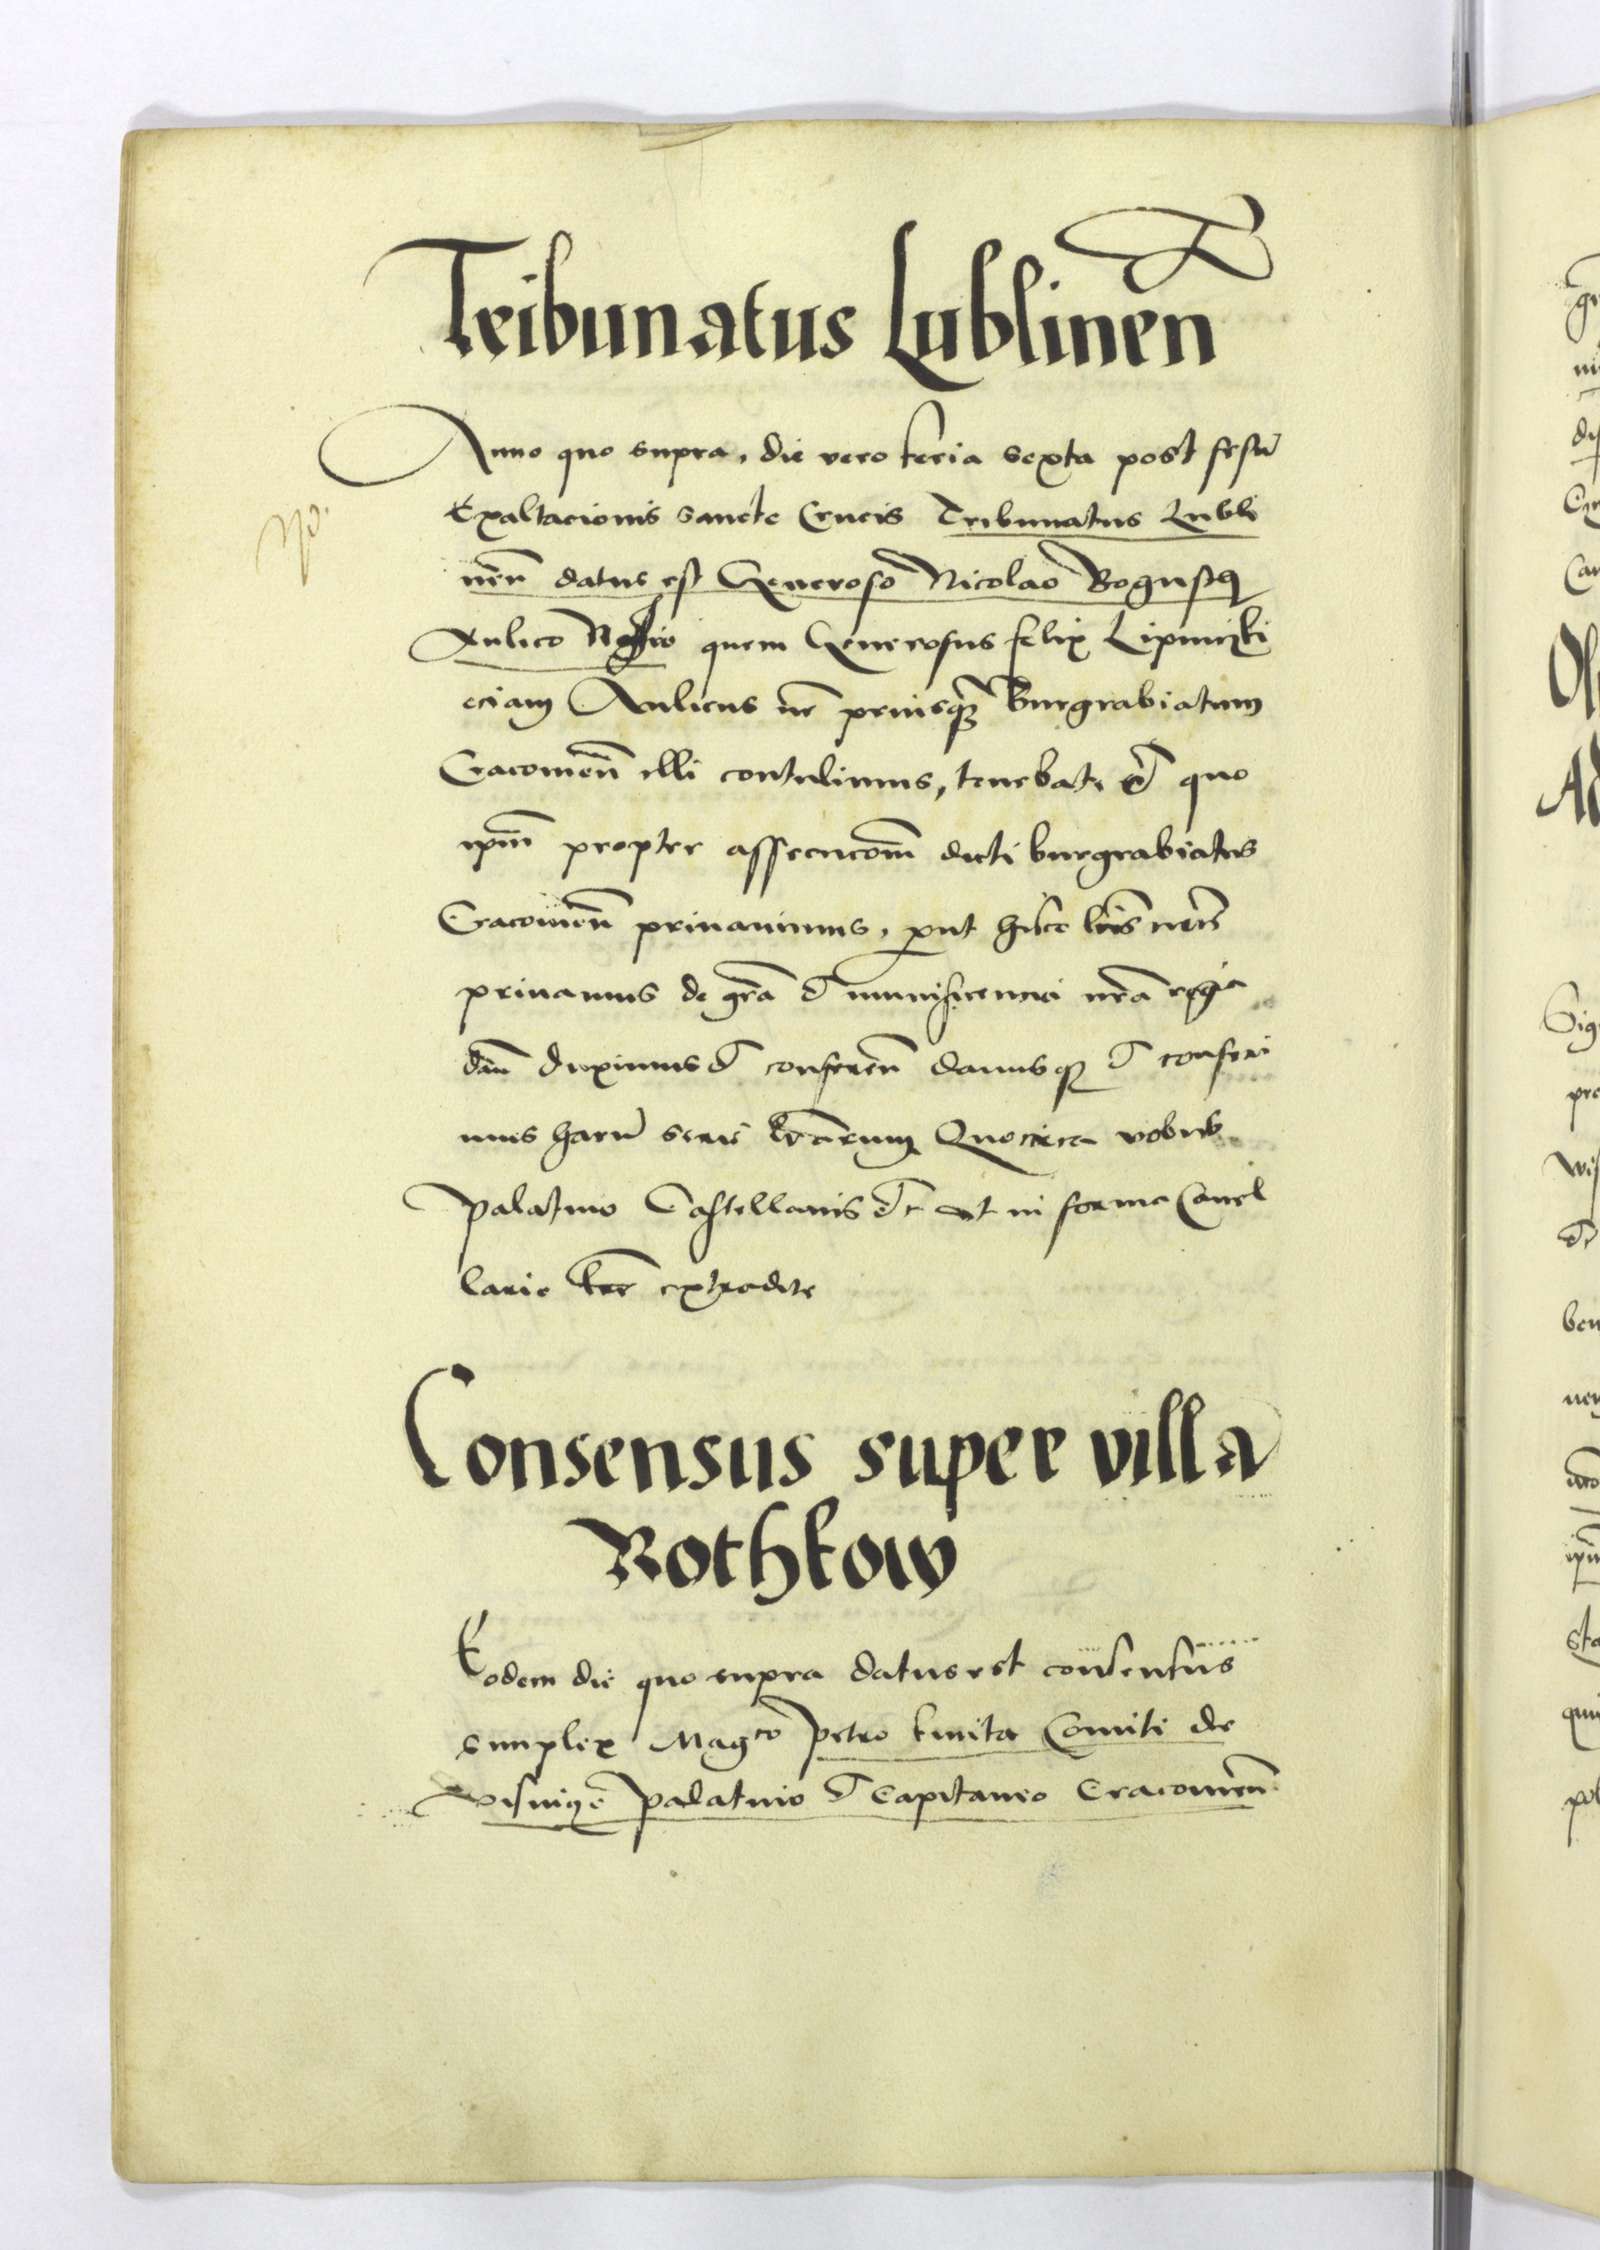 Tribunatus Lublinen̄
Anno quo supra, die vero feria sexta post festū
Exaltacionis sancte Crucis Tribunatus Lubli
nen̄ datus est Generoso Nicolao Bogusch
Aulico Nr̄o quem Generosus felix Lipniczki
eciam Aulicus nr̄ priusq̄ Burgrabiatum
Cracouien̄ illi contulimus, tenebat, et quo
ipm̄ propter assecucom̄ dicti burgrabiatus
Cracouien̄ priuauimus, put hisce lr̄is nr̄is
priuamus de gr̄a et munificencia nr̄a regia
dan̄ duximus et conferen̄ damusq̧ et conferi
mus harū serie lr̄arum Quocirca vobis
Palatino Castellanis etc ut in forma Cancel
larie lr̄e extradite
Consensus super villa
Rothkow
Eodem die quo supra datus est consensus
simplex Magco Petro kmita Comiti de
Visnicze Palatino et Capitaneo Cracouien̄